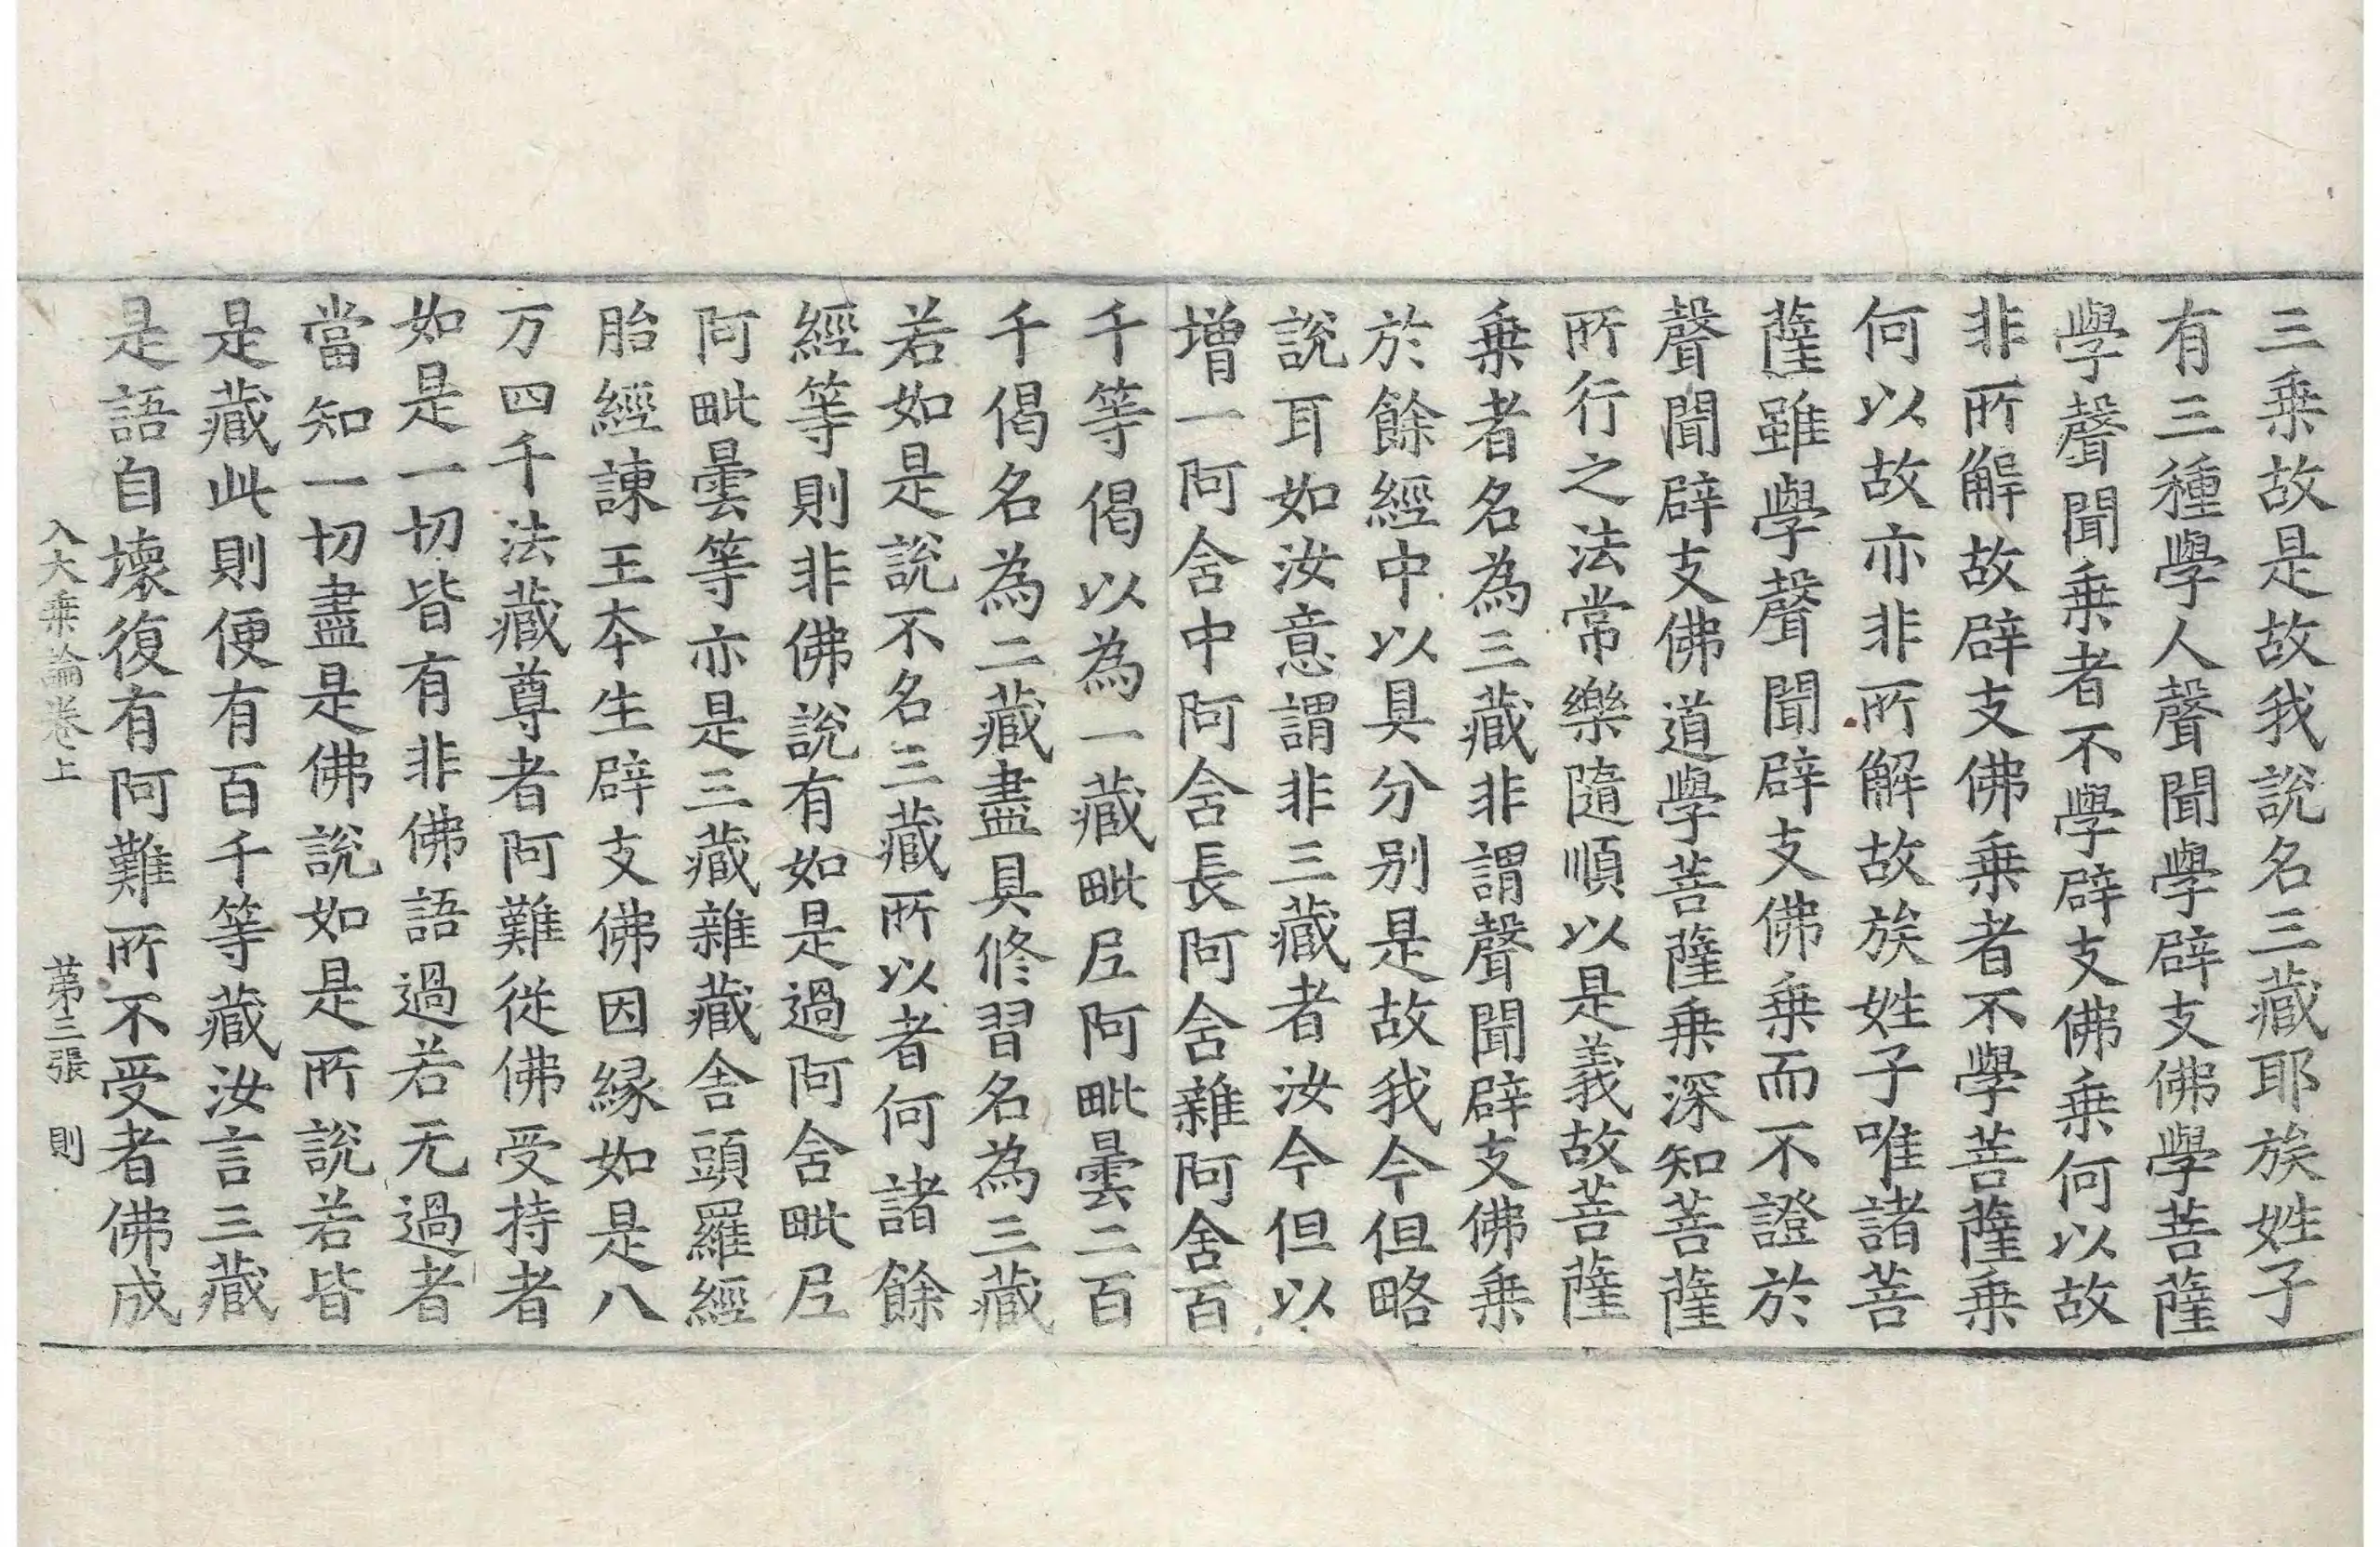 三乗故是故我說名三藏耶族姓子
有三種學人聲聞學辟支佛學菩薩
學聲聞乗者不學辟支佛乗何以故
非所解故辟支佛乗者不學菩薩乗
何以故亦非所解故族姓子唯諸菩
薩雖學聲聞辟支佛乗而不證於
聲聞辟支佛道學菩薩乗深知菩薩
所行之法常樂隨順以是義故菩薩
乗者名為三藏非謂聲聞辟支佛乗
於餘經中以具分别是故我今但略
說耳如汝意謂非三藏者汝今但以
増一阿含中阿含長阿含雜阿含百
千等偈以為一藏毗尼阿毗曇二百
千偈名為二藏盡具修習名為三藏
若如是說不名三藏所以者何諸餘
經等則非佛說有如是過阿含毗尼
阿毗曇等亦是三藏雜藏舍頭羅經
胎經諫王夲生辟支佛因緣如是八
万四千法藏尊者阿難從佛受持者
如是一切皆有非佛語過若无過者
當知一切盡是佛說如是所說若皆
是藏此則便有百千等藏汝言三藏
是語自壞復有阿難所不受者佛成
入大乗論卷上 第三張 則